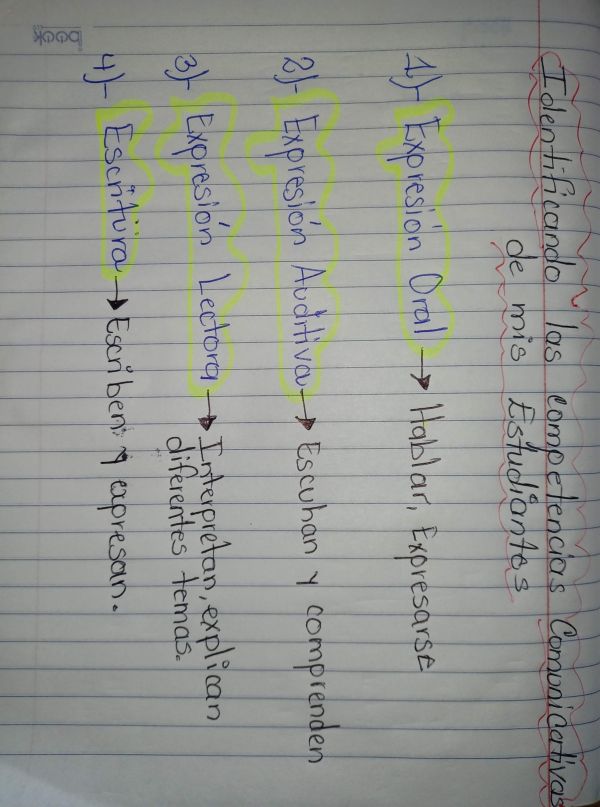 Identificando las competencias Comunicativas
de mis Estudiantes
1)- Expresión Oral → Hablar, Expresarse
2)- Expresión Auditiva → Escuhan y comprenden
3)- Expresión Lectora → Interpretan, explican
diferentes temas.
4)- Escritura → Escriben y expresan.